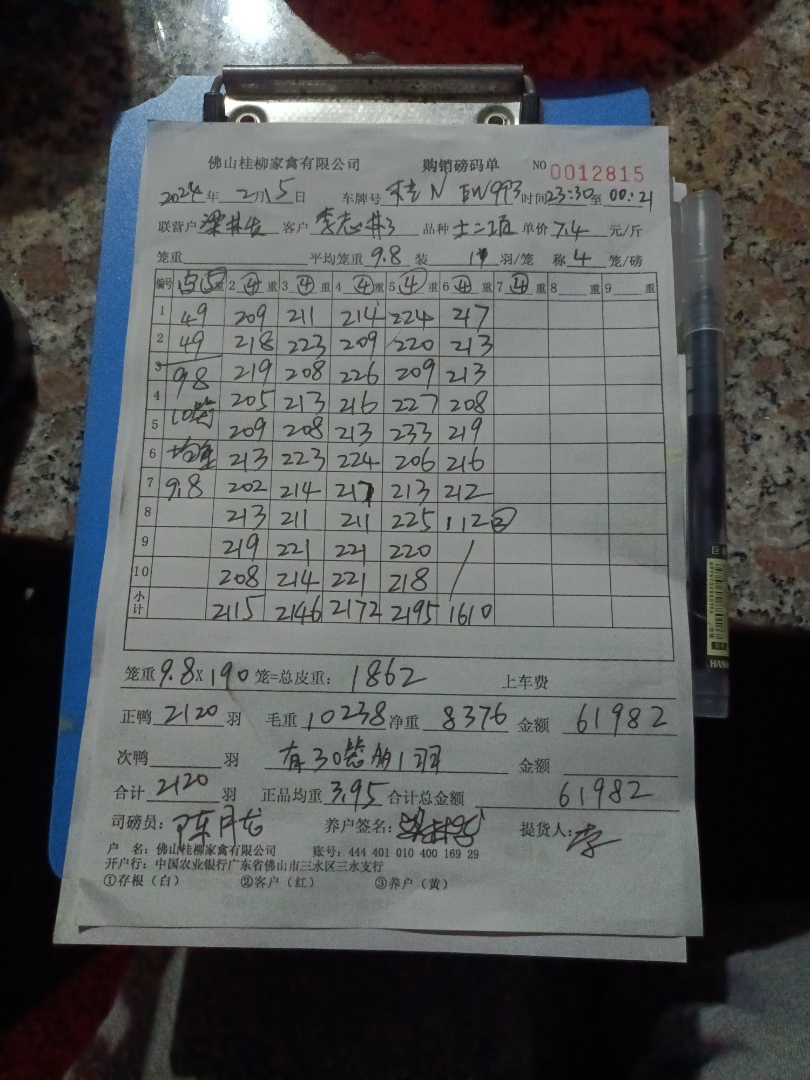 佛山桂柳家禽有限公司 购销磅码单 NO 0012815
2024年 2月15日 车牌号 桂N EW993 时间 23:30 至 00:21
联营户 梁 客户 李志 品种 土二 单价 7.4 元/斤
笼重 平均笼重 9.8 装 11 羽/笼 称 4 笼/磅
编号 重 2 ④ 重 3 ④ 重 4 ④ 重 5 ④ 重 6 ④ 重 7 ④ 重 8 重 9 重
1 49 209 211 214 224 217
2 49 218 223 209 220 213
3 98 219 208 226 209 213
4 10 205 213 216 227 208
5 209 208 213 233 219
6 均重 213 223 224 206 216
7 9.8 202 214 217 213 212
8 213 211 211 225 112 ②
9 219 221 221 220 /
10 208 214 221 218 /
小计 2115 2146 2172 2195 1610
笼重 9.8 X 190 笼=总皮重: 1862 上车费
正鸭 2120 羽 毛重 10238 净重 8376 金额 61982
次鸭 羽 有30 1羽 金额
合计 2120 羽 正品均重 3.95 合计总金额 61982
司磅员: 陈月龙 养户签名: 梁 提货人: 李
户 名: 佛山桂柳家禽有限公司 账号: 444 401 010 400 169 29
开户行: 中国农业银行广东省佛山市三水区三水支行
①存根（白） ②客户（红） ③养户（黄）